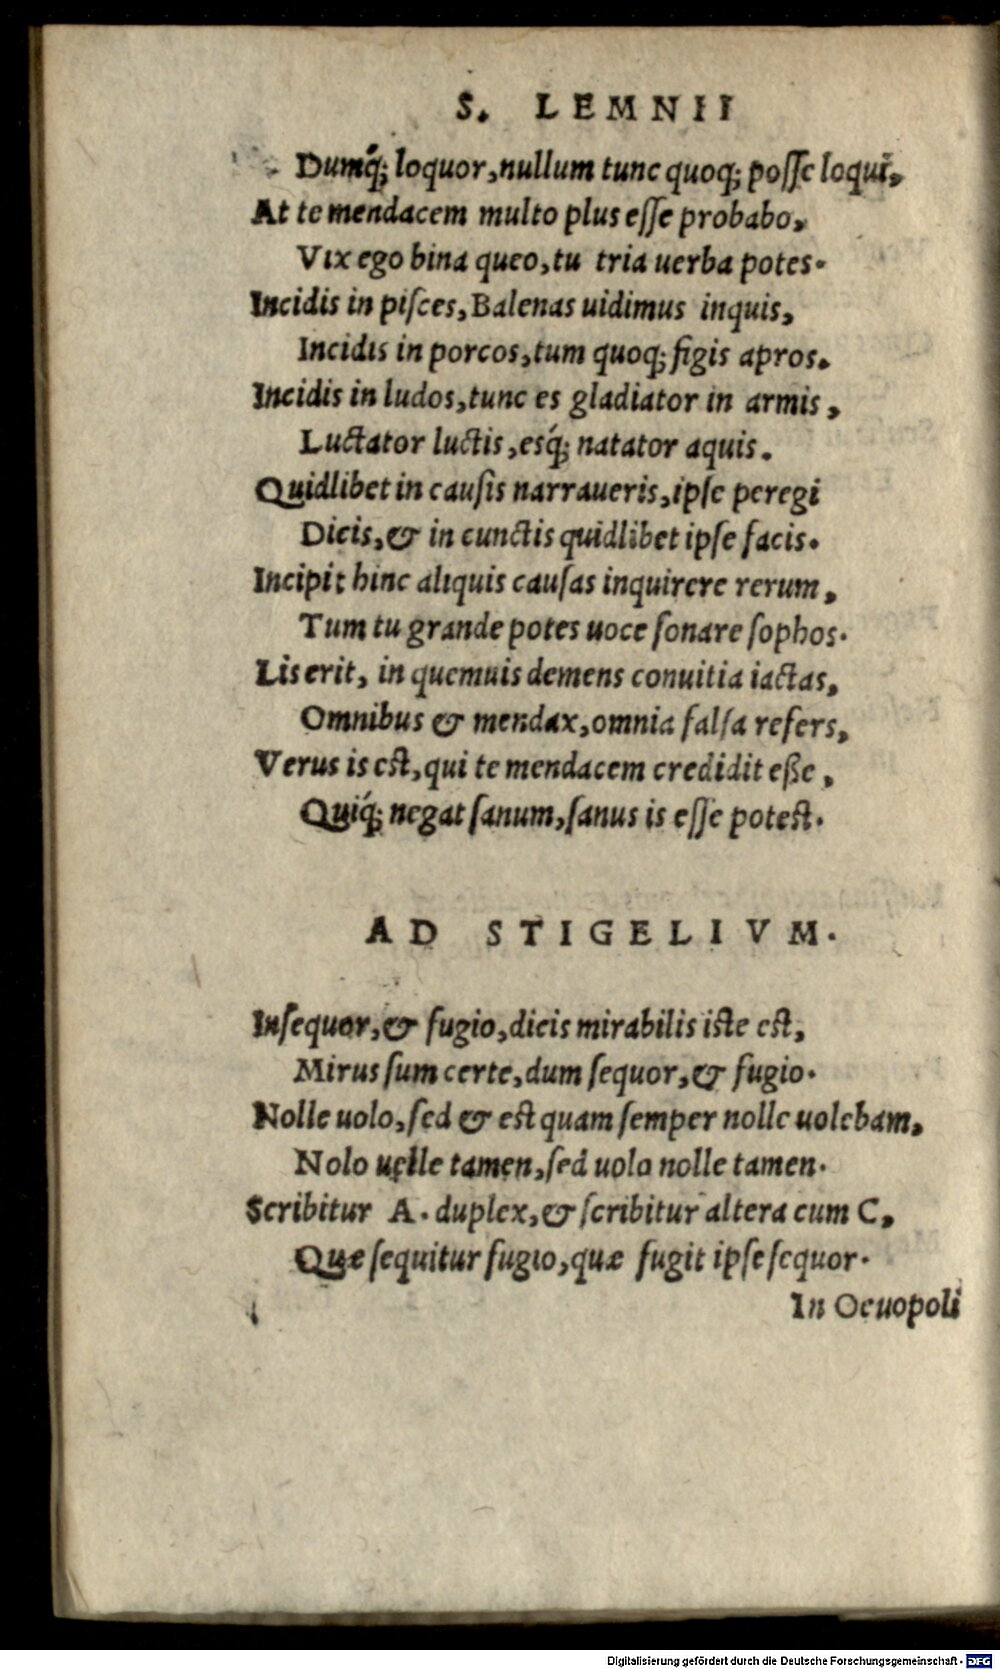 S. LEMNII
Dumq́; loquor, nullum tunc quoq; posse loqui,
At te mendacem multo plus esse probabo,
Vix ego bina queo, tu tria uerba potes.
Incidis in pisces, Balenas uidimus inquis,
Incidis in porcos, tum quoq; figis apros.
Incidis in ludos, tunc es gladiator in armis,
Luctator luctis, esq́; natator aquis.
Quidlibet in causis narraueris, ipse peregi
Dicis, & in cunctis quidlibet ipse facis.
Incipit hinc aliquis causas inquirere rerum,
Tum tu grande potes uoce sonare sophos.
Lis erit, in quemuis demens conuitia iactas,
Omnibus & mendax, omnia falsa refers,
Verus is est, qui te mendacem credidit eße,
Quiq́; negat sanum, sanus is esse potest.
AD STIGELIVM.
Insequor, & fugio, dicis mirabilis iste est,
Mirus sum certe, dum sequor, & fugio.
Nolle uolo, sed & est quam semper nolle uolebam,
Nolo uelle tamen, sed uolo nolle tamen.
Scribitur A. duplex, & scribitur altera cum C,
Quæ sequitur fugio, quæ fugit ipse sequor.
In Ocuopoli
Digitalisierung gefördert durch die Deutsche Forschungsgemeinschaft - DFG